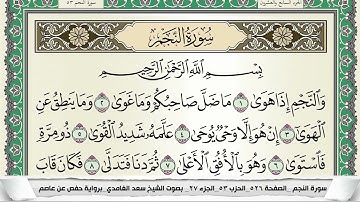 الجزء السابع والعشرون
سورة النجم ٥٣
سُورَةُ النَّجْمِ
بِسْمِ اللَّهِ الرَّحْمَٰنِ الرَّحِيمِ
وَالنَّجْمِ إِذَا هَوَىٰ ١ مَا ضَلَّ صَاحِبُكُمْ وَمَا غَوَىٰ ٢ وَمَا يَنطِقُ عَنِ
الْهَوَىٰ ٣ إِنْ هُوَ إِلَّا وَحْيٌ يُوحَىٰ ٤ عَلَّمَهُ شَدِيدُ الْقُوَىٰ ٥ ذُو مِرَّةٍ
فَاسْتَوَىٰ ٦ وَهُوَ بِالْأُفُقِ الْأَعْلَىٰ ٧ ثُمَّ دَنَا فَتَدَلَّىٰ ٨ فَكَانَ قَابَ
سورة النجم _الصفحة ٥٢٦_ الحزب ٥٣_ الجزء ٢٧_ بصوت الشيخ سعد الغامدي_ برواية حفص عن عاصم